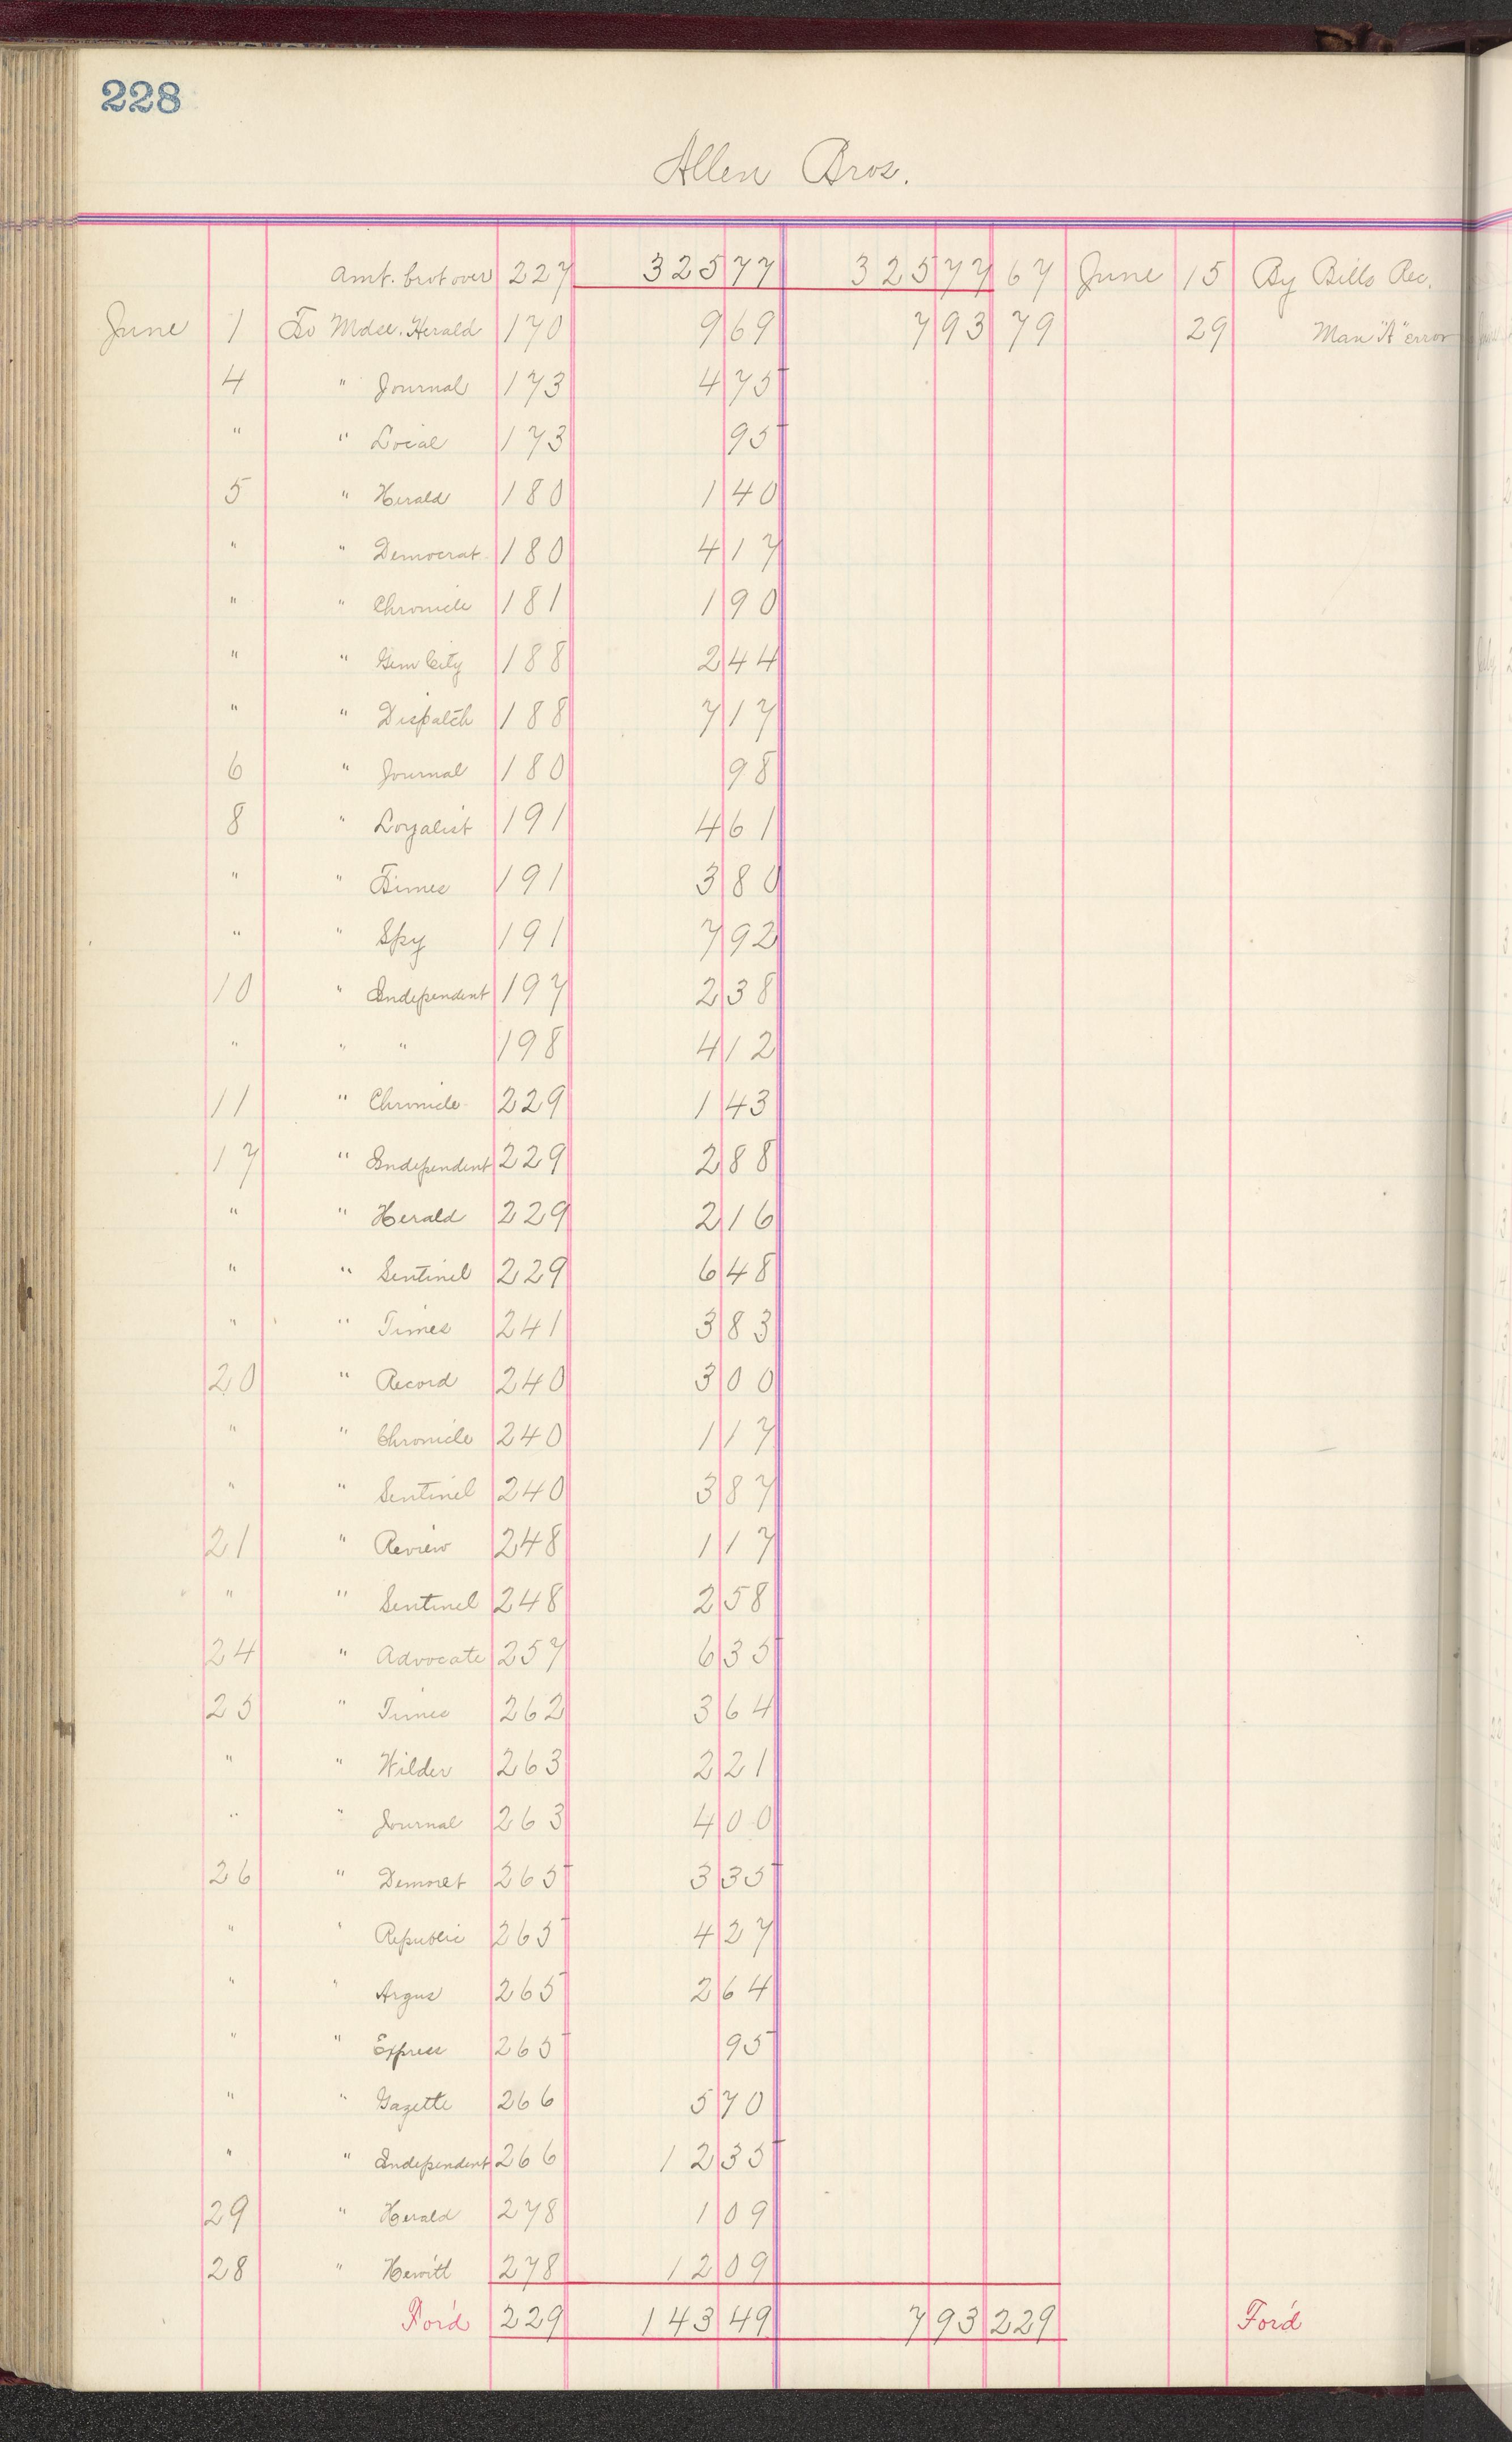 228
Allen Bros.
Amt. brot over 227 325 77 325 77 67 June 15 By Bills Rec.
June 1 To Mdse. Herald 170 9 69 7 93 79 29 Man "A" error
4 " Journal 173 4 75
" " Local 173 95
5 " Herald 180 1 40
" " Democrat 180 4 17
" " Chronicle 181 1 90
" " Gem City 188 2 44
" " Dispatch 188 7 17
6 " Journal 180 98
8 " Loyalist 191 4 61
" " Times 191 3 80
" " Spy 191 7 92
10 " Independent 197 2 38
" " " 198 4 12
11 " Chronicle 229 1 43
17 " Independent 229 2 88
" " Herald 229 2 16
" " Sentinel 229 6 48
" " Times 241 3 83
20 " Record 240 3 00
" " Chronicle 240 1 17
" " Sentinel 240 3 87
21 " Review 248 1 17
" " Sentinel 248 2 58
24 " Advocate 257 6 35
25 " Times 262 3 64
" " Wilder 263 2 21
" " Journal 263 4 00
26 " Democrt 265 3 35
" " Republic 265 4 27
" " Argus 265 2 64
" " Express 265 95
" " Gazette 266 5 70
" " Independent 266 12 35
29 " Herald 278 1 09
28 " Hewitt 278 12 09
For'd 229 143 49 7 93 229 For'd